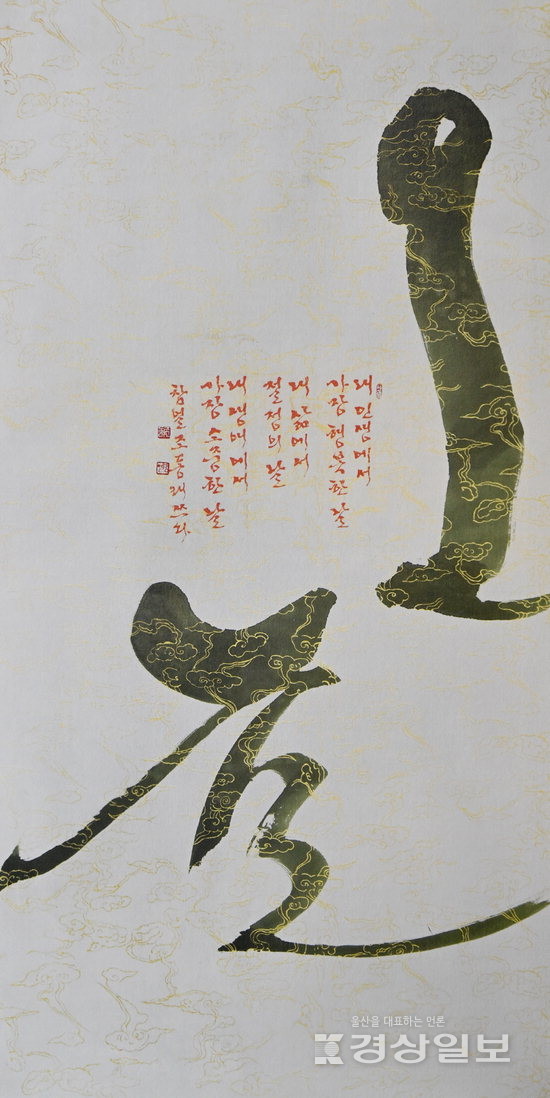 내 인생에서
가장 행복한 날
내 삶에서
절정의 날
내 생애에서
가장 소중한 날
쓰다
울산을 대표하는 언론
경상일보